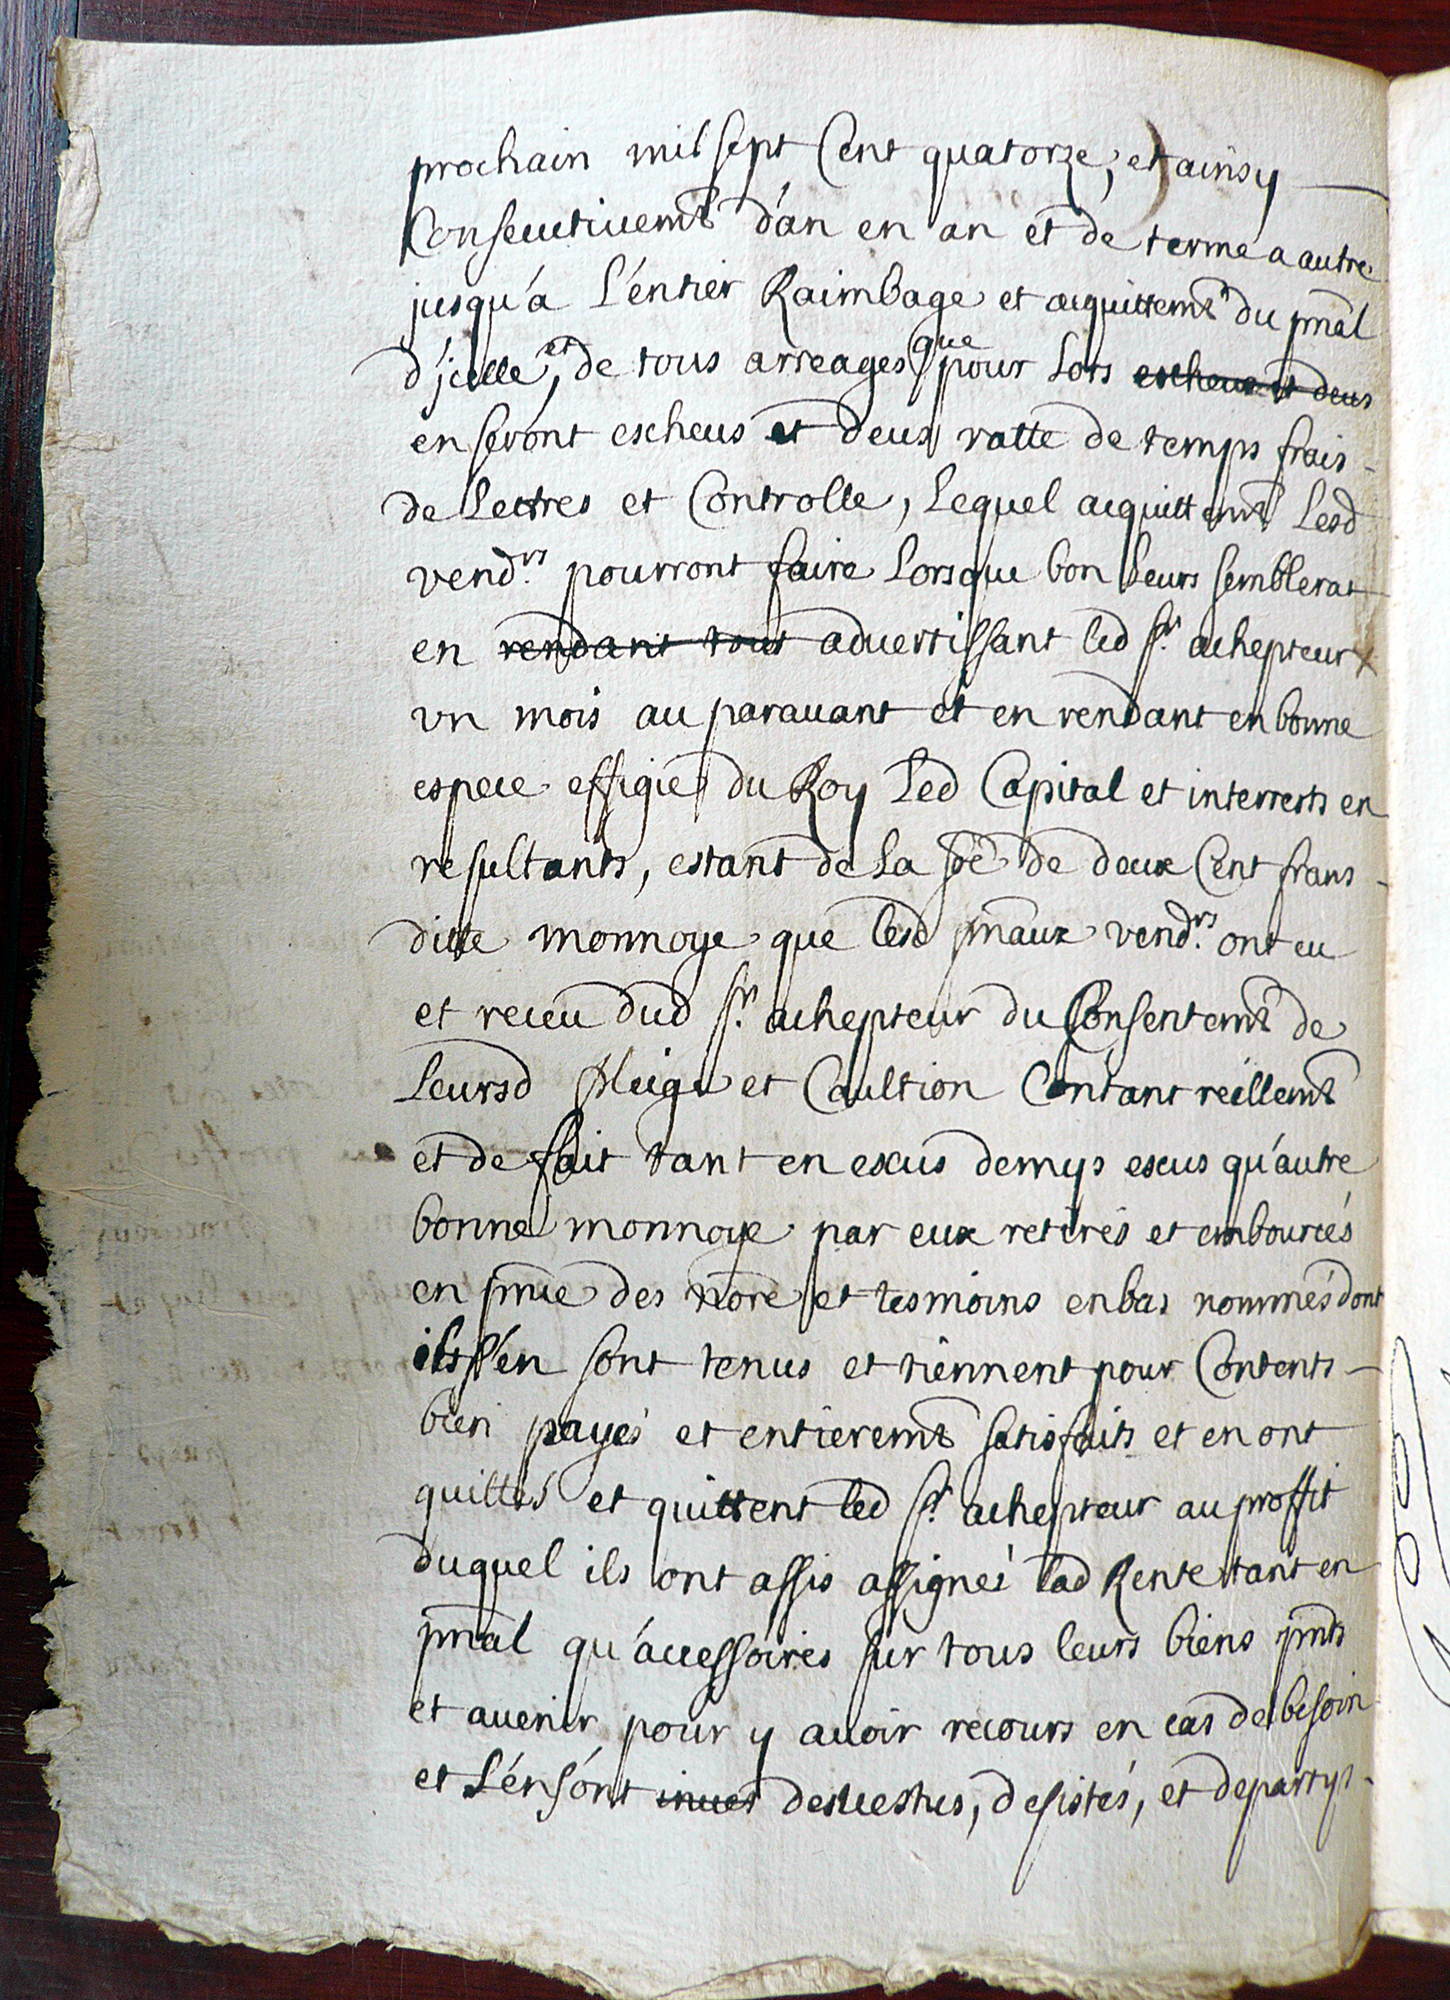 prochain mil sept Cent quatorze, et ainsy
Consecutivemt d'an en an et de terme a autre
jusqu'a L'entier Raimbage et acquittemt du pnal
d'jcelle, et de tous arreages que pour Lors escheus et deus
en seront escheus et deus ratte de temps frais
de Lettres et Controlle, Lequel acquittemt Lesd
vendrs pourront faire Lorsque bon Leurs semblerat
en rendant tout advertissant led sr achepteur
vn mois au paravant et en rendant en bonne
espece effigie du Roy Led Capital et interrests en
resultants, estant de La soe de deux Cent frans
ditte monnoye que lesd pnaux vendrs ont eu
et receu dud sr achepteur du Consentemt de
Leursd pleige et Caultion Contant reellemt
et de fait tant en escus demys escus qu'autre
bonne monnoye par eux retirés et embourcés
en pnce des nore et tesmoins en bas nommés dont
ils s'en sont tenus et tiennent pour Contents
bien payés et entieremt satisfaits et en ont
quittés et quittent led sr achepteur au proffit
duquel ils ont assis assignés lad Rente tant en
pnal qu'accessoires sur tous leurs biens pnts
et avenir pour y avoir recours en cas de besoin
et s'en sont devestus, desistés, et departys